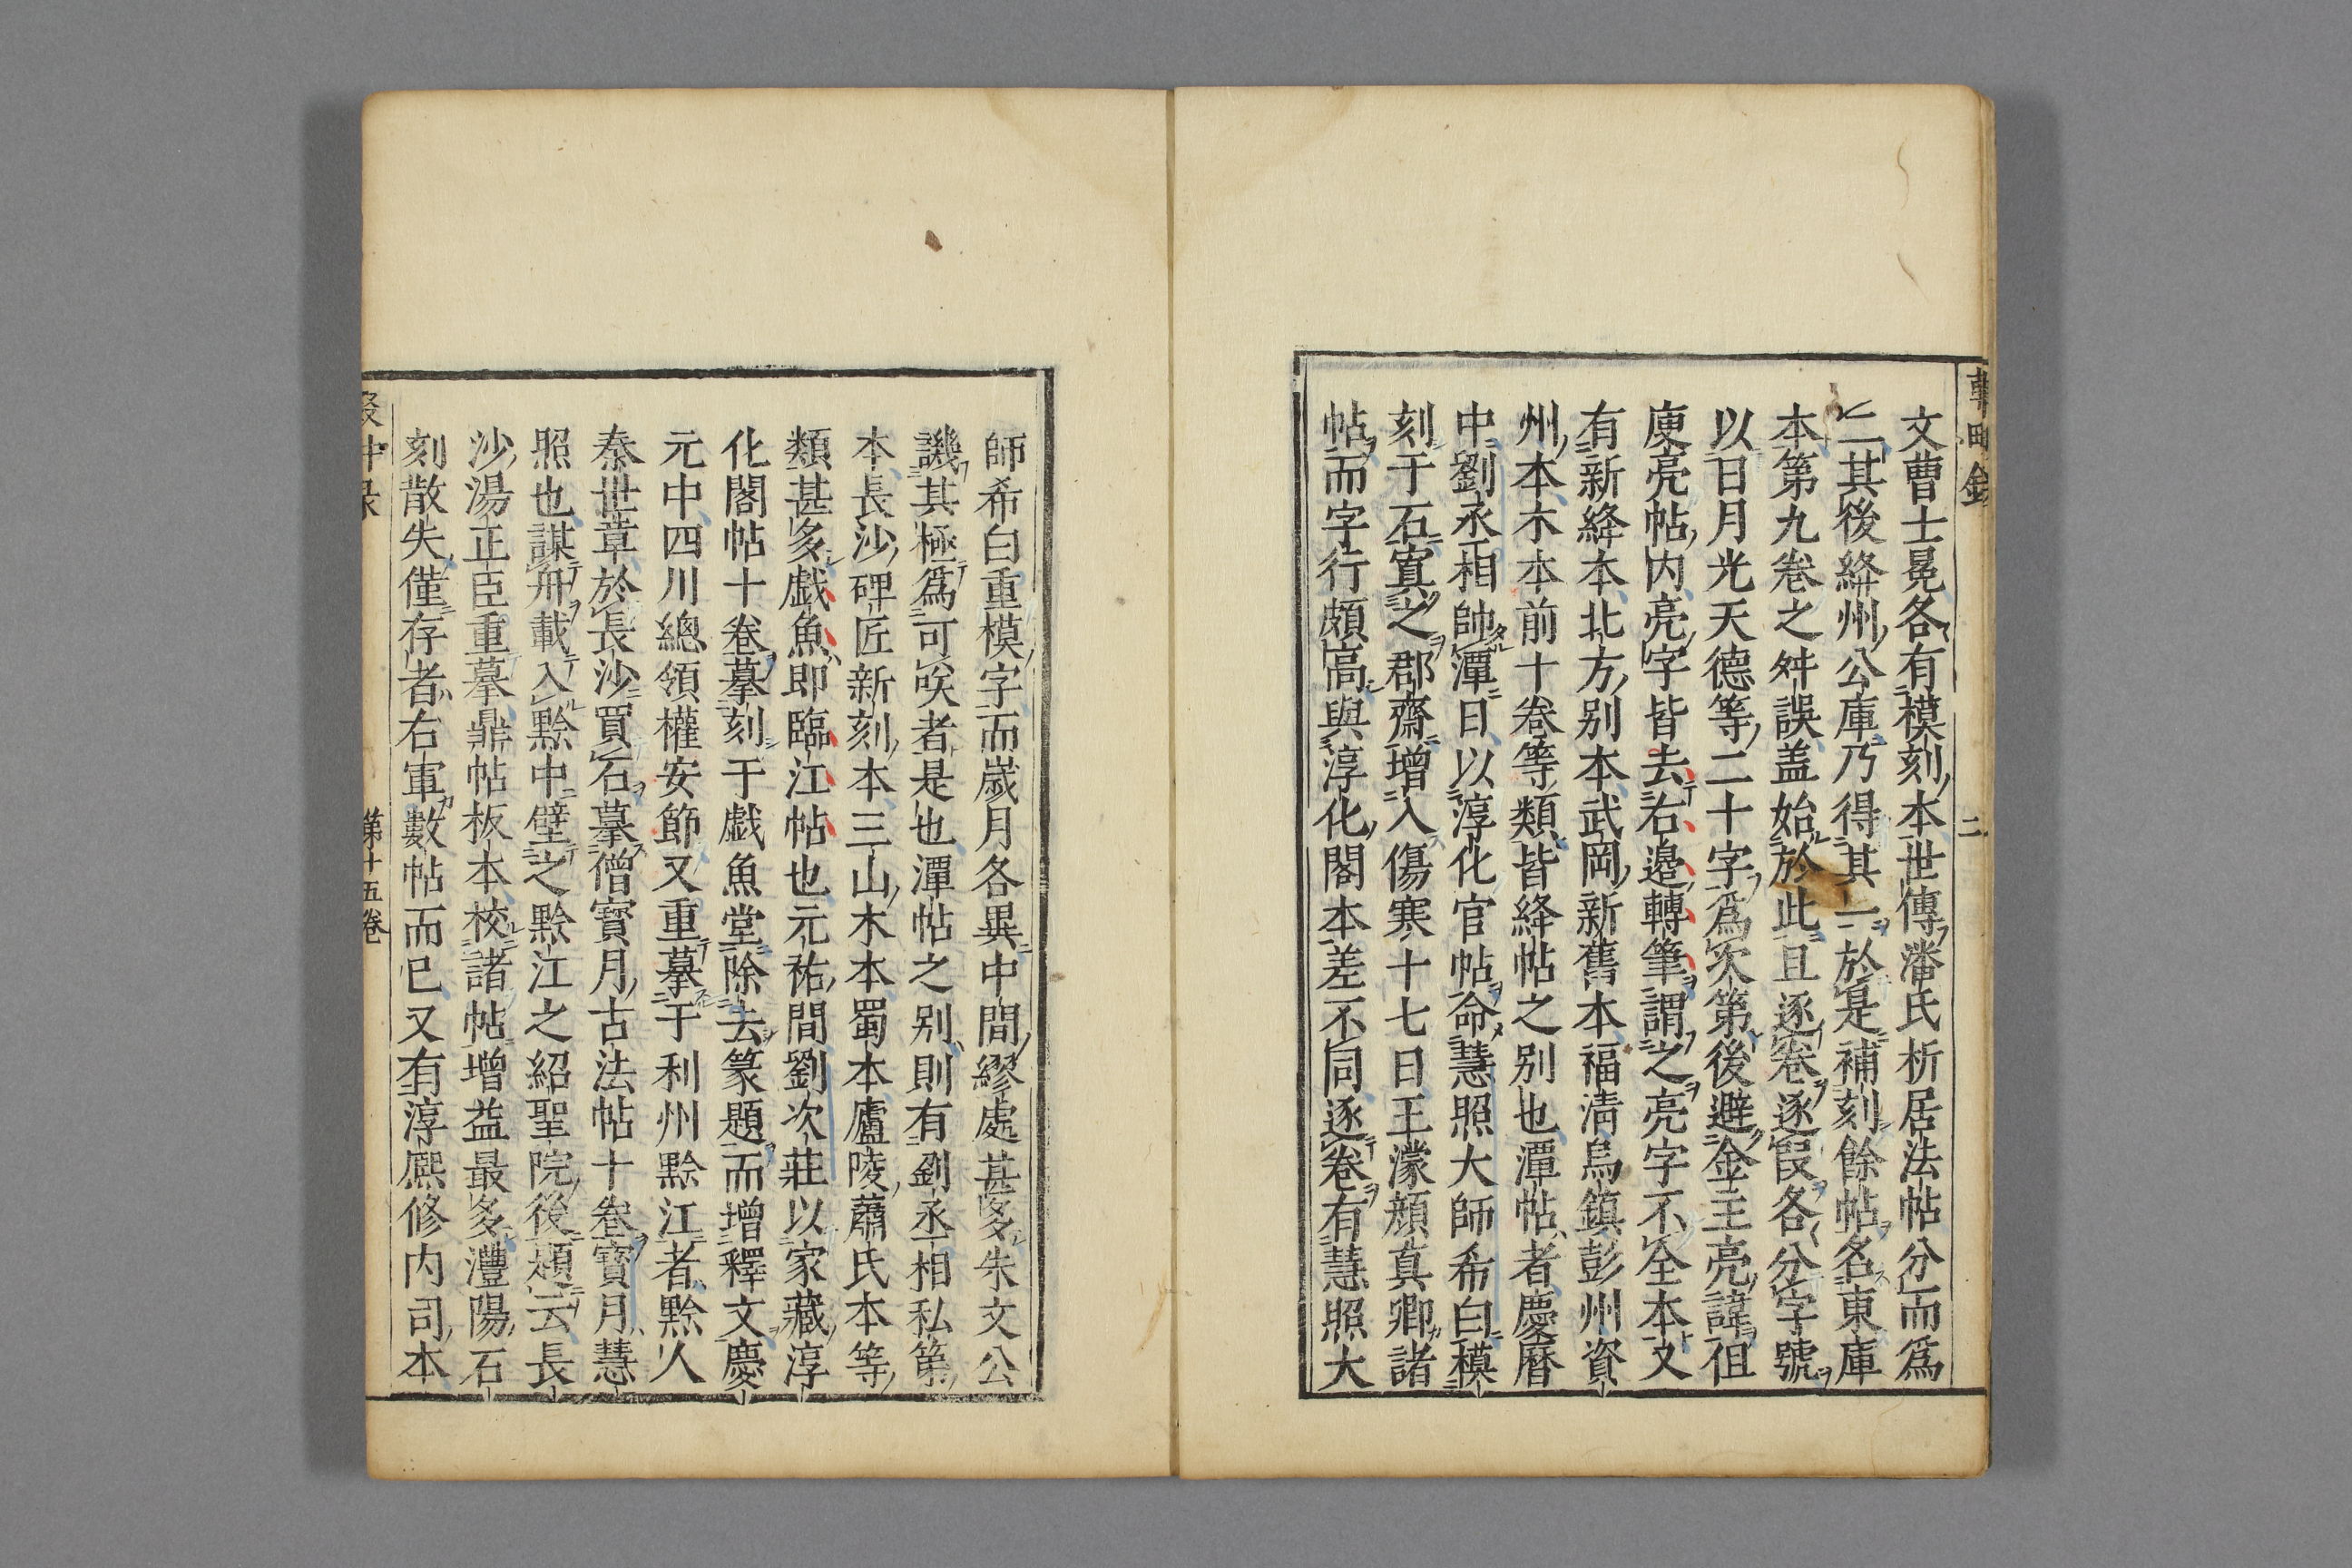 文曹士冕各有模刻本世傳潘氏析居法帖分而爲
二其後絳州公庫乃得其一於是補刻餘帖名東庫
本第九卷之舛誤盖始於此且逐卷逐段各分字號
以日月光天德等二十字爲次第後避金主亮諱徂
庾亮帖内亮字皆去右邉轉筆謂之亮字不全本又
有新絳本北方别本武岡新舊本福清烏鎮彭州資
州本木本前十卷等類皆絳帖之别也潭帖者慶曆
中劉丞相帥潭日以淳化官帖命慧照大師希白模
刻于石寘之郡齋增入傷寒十七日王濛顔真卿諸
帖而字行頗高與淳化閣本差不同逐卷有慧照大
師希白重模字而嵗月各異中間繆處甚多朱文公
譏其極爲可咲者是也潭帖之别則有劉丞相私第
本長沙碑匠新刻本三山木本蜀本廬陵蕭氏本等
類甚多戯魚即臨江帖也元祐間劉次莊以家藏淳
化閣帖十卷摹刻于戯魚堂除去篆題而增釋文慶
元中四川總領權安節又重摹于利州黔江者黔人
秦世章於長沙買石摹僧寳月古法帖十卷寳月慧
照也謀舟載入黔中壁之黔江之紹聖院後題云長
沙湯正臣重摹鼎帖板本校諸帖增益最多灃陽石
刻散失僅存者右軍數帖而已又有淳熈修内司本
第十五卷